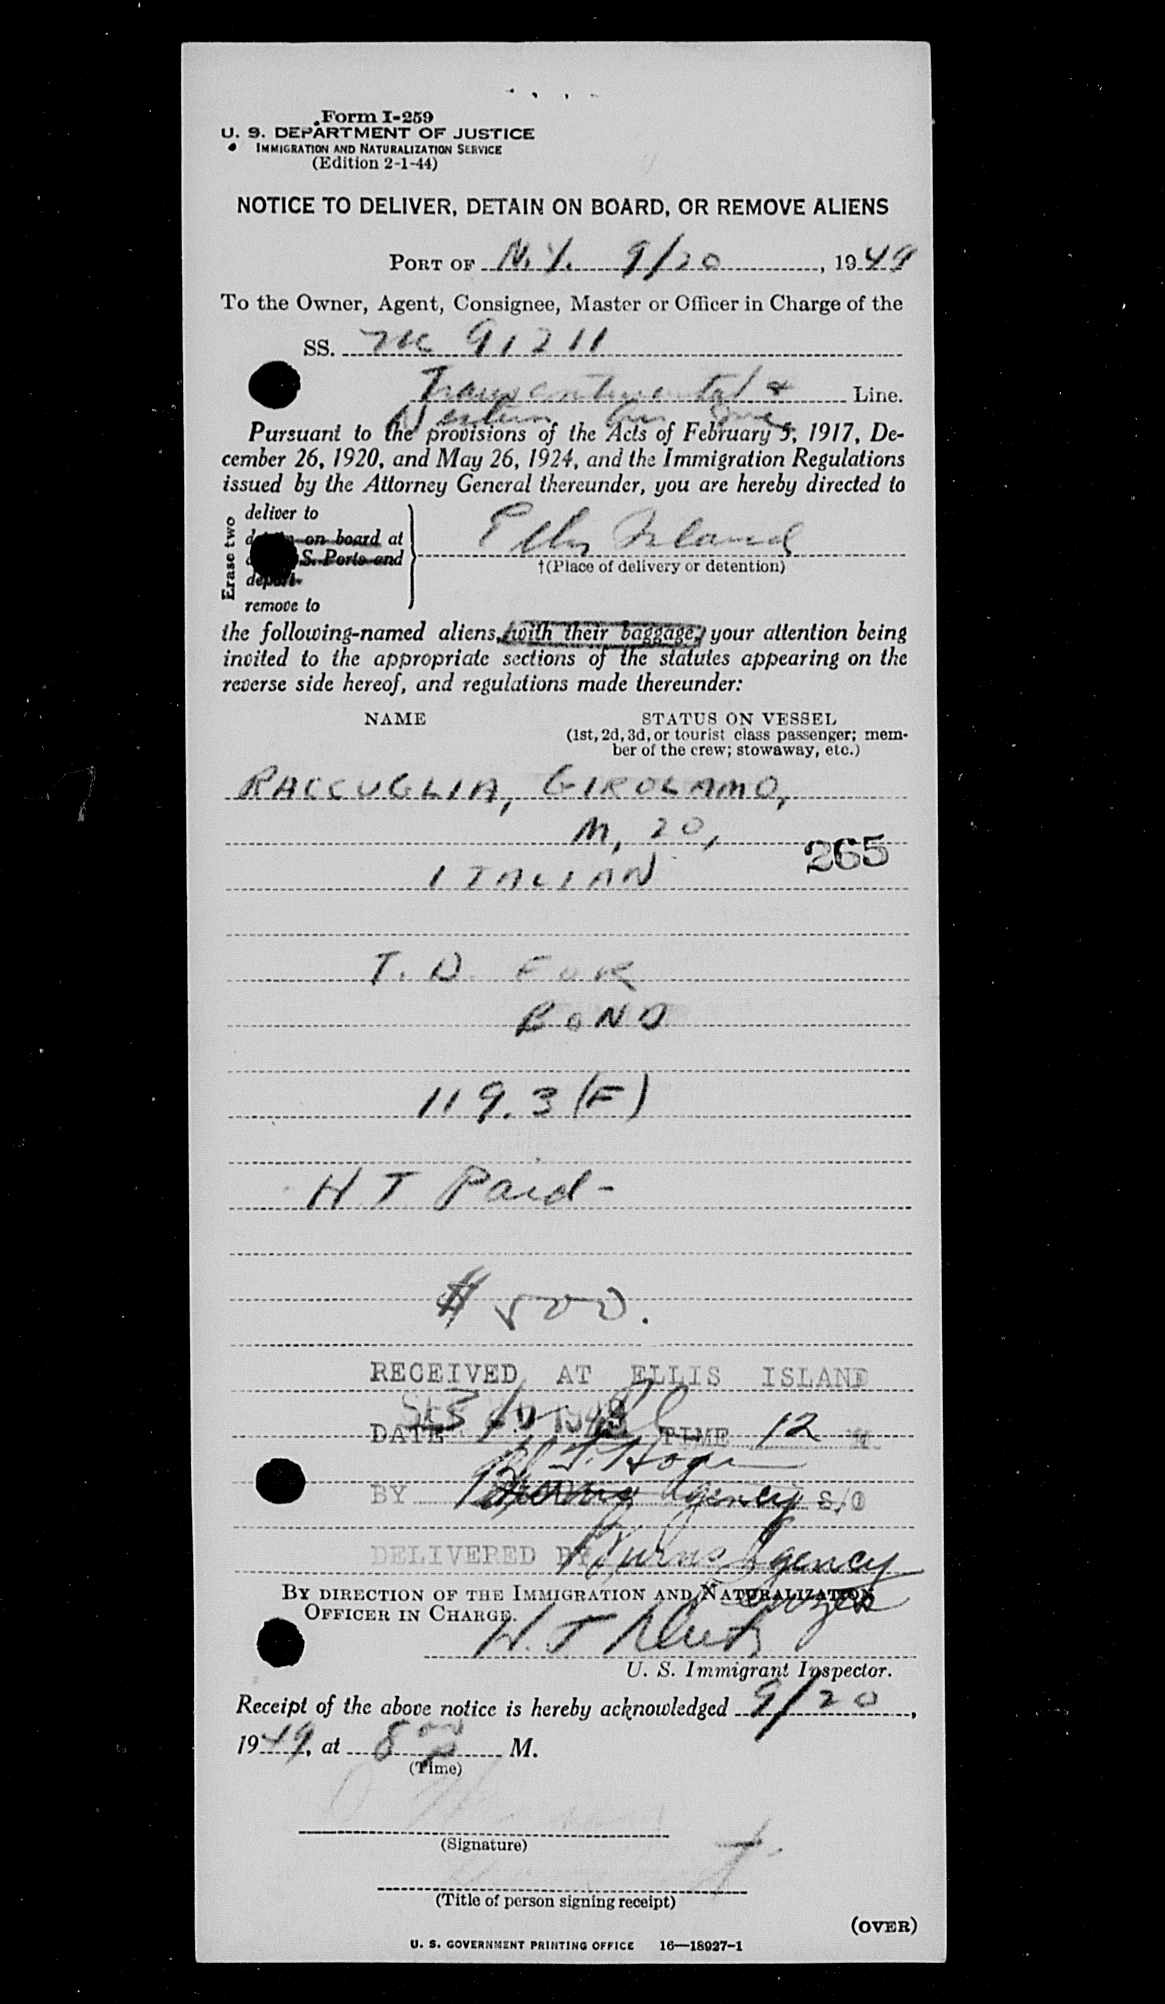 Form I-259
U. S. DEPARTMENT OF JUSTICE
IMMIGRATION AND NATURALIZATION SERVICE
(Edition 2-1-44)
NOTICE TO DELIVER, DETAIN ON BOARD, OR REMOVE ALIENS
PORT OF N.Y. 9/20, 1949
To the Owner, Agent, Consignee, Master or Officer in Charge of the
SS. NC 91211
Transcontinental & Line.
Western Air Line
Pursuant to the provisions of the Acts of February 5, 1917, De-
cember 26, 1920, and May 26, 1924, and the Immigration Regulations
issued by the Attorney General thereunder, you are hereby directed to
Erase two
deliver to
on board at
S. Ports and
deport
remove to
Ellis Island
†(Place of delivery or detention)
the following-named aliens, with their baggage, your attention being
invited to the appropriate sections of the statutes appearing on the
reverse side hereof, and regulations made thereunder:
NAME STATUS ON VESSEL
(1st, 2d, 3d, or tourist class passenger; mem-
ber of the crew; stowaway, etc.)
RACCUGLIA, GIROLAMO,
M, 20,
265
ITALIAN
T. D. FOR
BOND
119.3 (F)
H. T Paid -
$500.
RECEIVED AT ELLIS ISLAND
DATE TIME 12 M
BY Agency S/O
DELIVERED BY Burns Agency
BY DIRECTION OF THE IMMIGRATION AND NATURALIZATION
OFFICER IN CHARGE.
H. T
U. S. Immigrant Inspector.
Receipt of the above notice is hereby acknowledged 9/20,
1949, at 8 00 P M.
(Time)
(Signature)
(Title of person signing receipt)
(OVER)
U. S. GOVERNMENT PRINTING OFFICE 16—18927-1